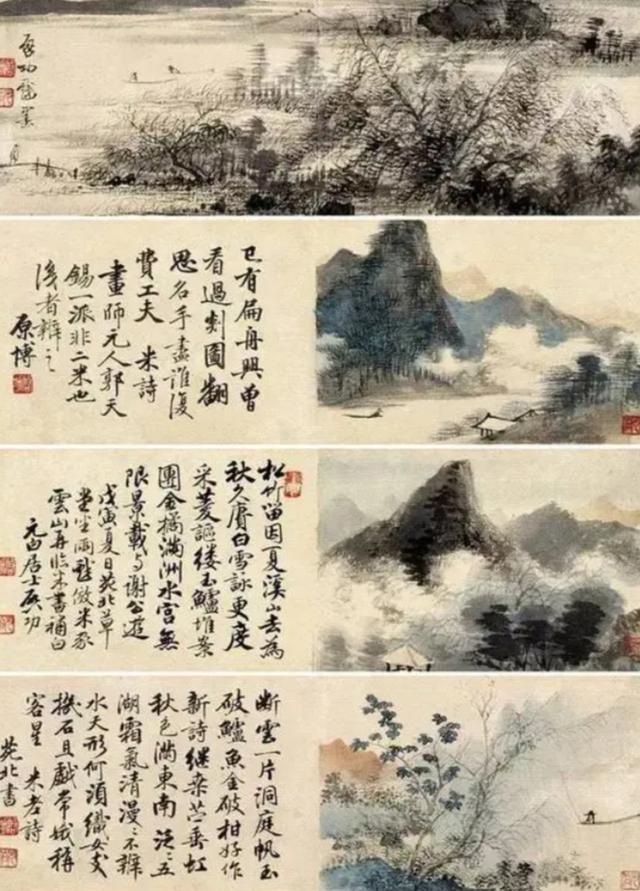 启功
已有扁舟興曾
看過剡圖翻
思名手盡誰復
費工夫 米詩
畫師元人郭天
錫一派非二米也
者辨之
原博
松竹留因夏溪山去為
秋久賡白雪詠更度
采菱謳縷玉鱸堆案
團金橘滿洲水宫無
限景載与謝公遊
戊寅夏日苑北草
堂坐雨戲倣米家
雲山再臨米書補白
元白居士啟功
断雲一片洞庭帆玉
破鱸魚金破柑好作
新詩继桒苎垂虹
秋色滿東南泛〻五
湖霜氣清漫〻不辨
水天形何須織女支
機石且戲常娥稱
客星 米老詩
苑北書